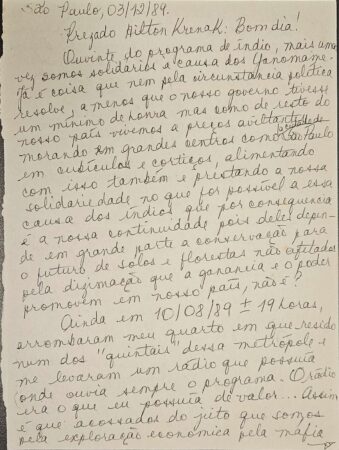 São Paulo, 03/12/89.
Prezado Ailton Krenak: Bom dia!
Ouvinte do programa de índio, mais uma
vez somos solidários a causa dos Yanomame.
Tá é coisa que nem pela circunstancia política
resolve, a menos que o nosso governo tivesse
um mínimo de honra mas como de resto do
nosso país vivemos a preços aviltantes
morando em grandes centros como São Paulo
em cubículos e cortiços, alimentando
com isso também e prestando a nossa
solidariedade no que for possível a essa
causa dos índios que por consequencia
é a nossa continuidade pois deles depen-
de em grande parte a conservação para
o futuro de solos e florestas não afetados
pela dizimação que a ganancia e o poder
promovem em nosso país, não é?
Ainda em 10/08/89 ± 19 horas,
arrombaram meu quarto em que resido
num dos "quintais" dessa metropole e
me levaram um rádio que possuia
(onde ouvia sempre o programa. O rádio
era o que eu possuia de valor... Assim
é que acossados do jeito que somos
pela exploração econômica pela mafia